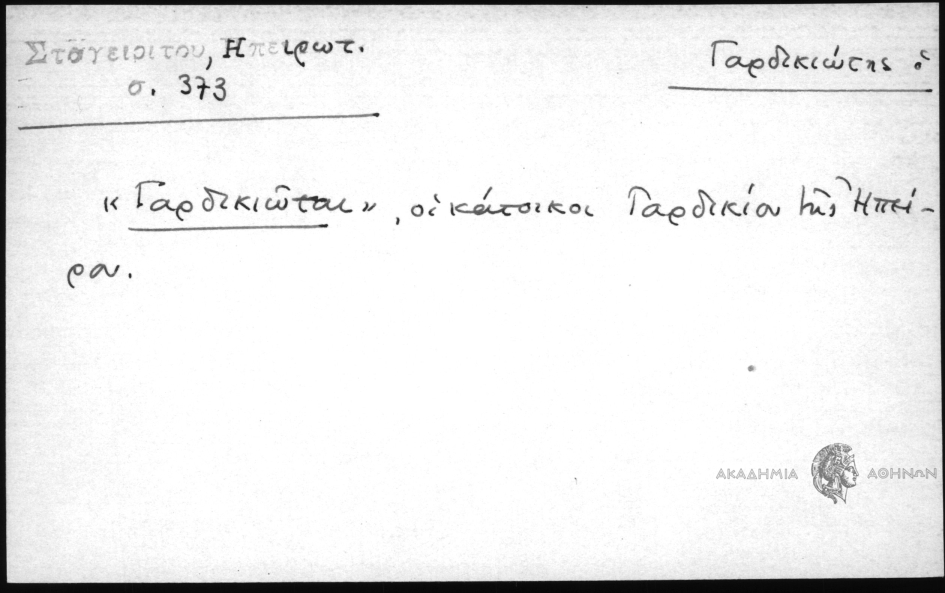 Σταγειρίτου, Ηπειρωτ.
σ. 373
Γαρδικιώτης ὁ
« Γαρδικιῶται » , οἱ κάτοικοι Γαρδικίου τῆς Ἠπεί-
ρου.
ΑΚΑΔΗΜΙΑ ΑΘΗΝΩΝ